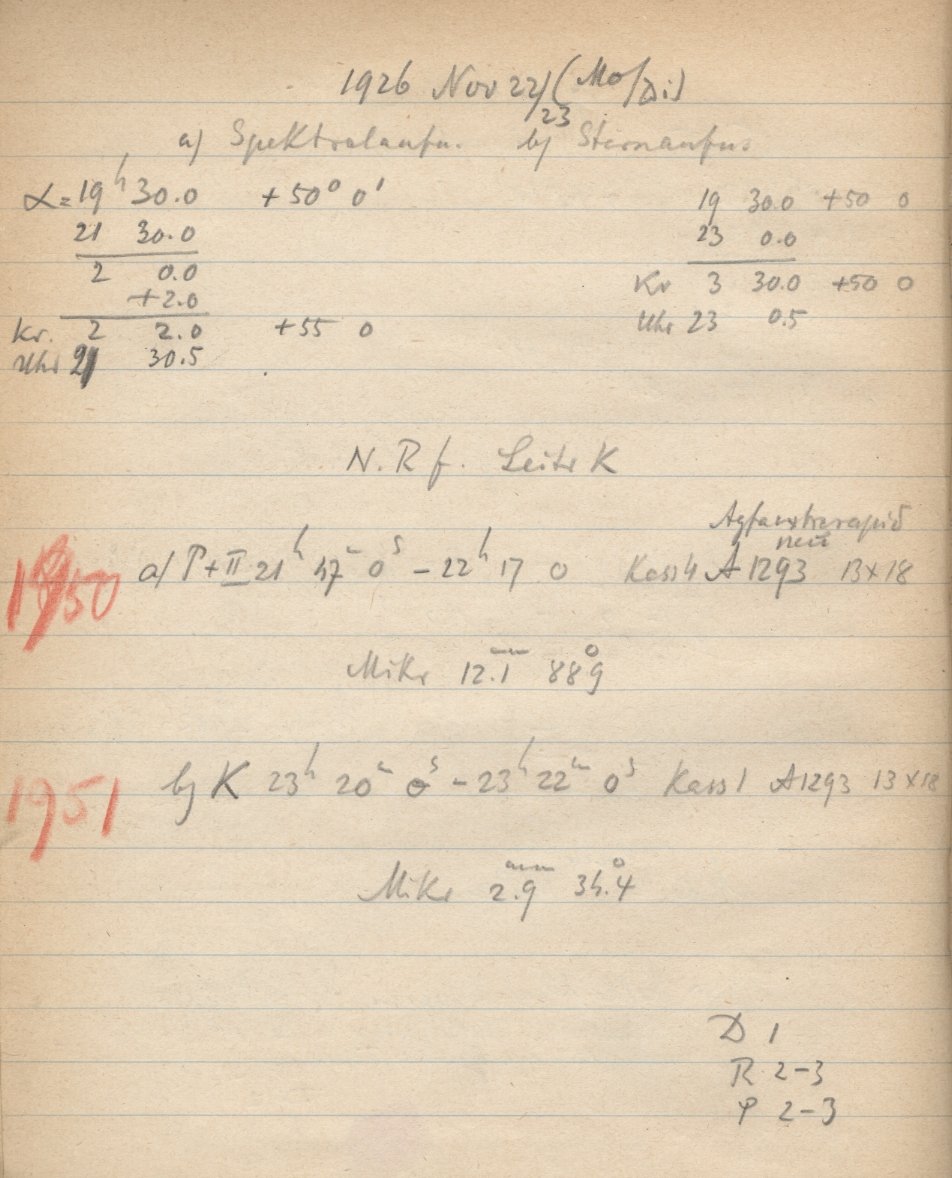 1926 Nov 22/23 (Mo/Di)
a) Spektralaufn. b) Sternaufn.
α = 19h 30.0 +50° 0'
21 30.0
2 0.0
+2.0
Kr. 2 2.0 +55 0
Uhr 21 30.5
19 30.0 +50 0
23 0.0
Kr 3 30.0 +50 0
Uhr 23 0.5
N. R f. Leitr K
Agfa extrarapid
neu
1950 a) P+II 21h 47m 0s – 22h 17 0 Kass 4 A 1293 13x18
Mikr 12.1 mm 88°9
1951 b) K 23h 20m 0s – 23h 22m 0s Kass 1 A 1293 13x18
Mikr 2.9 mm 34.°4
D 1
R 2–3
P 2–3